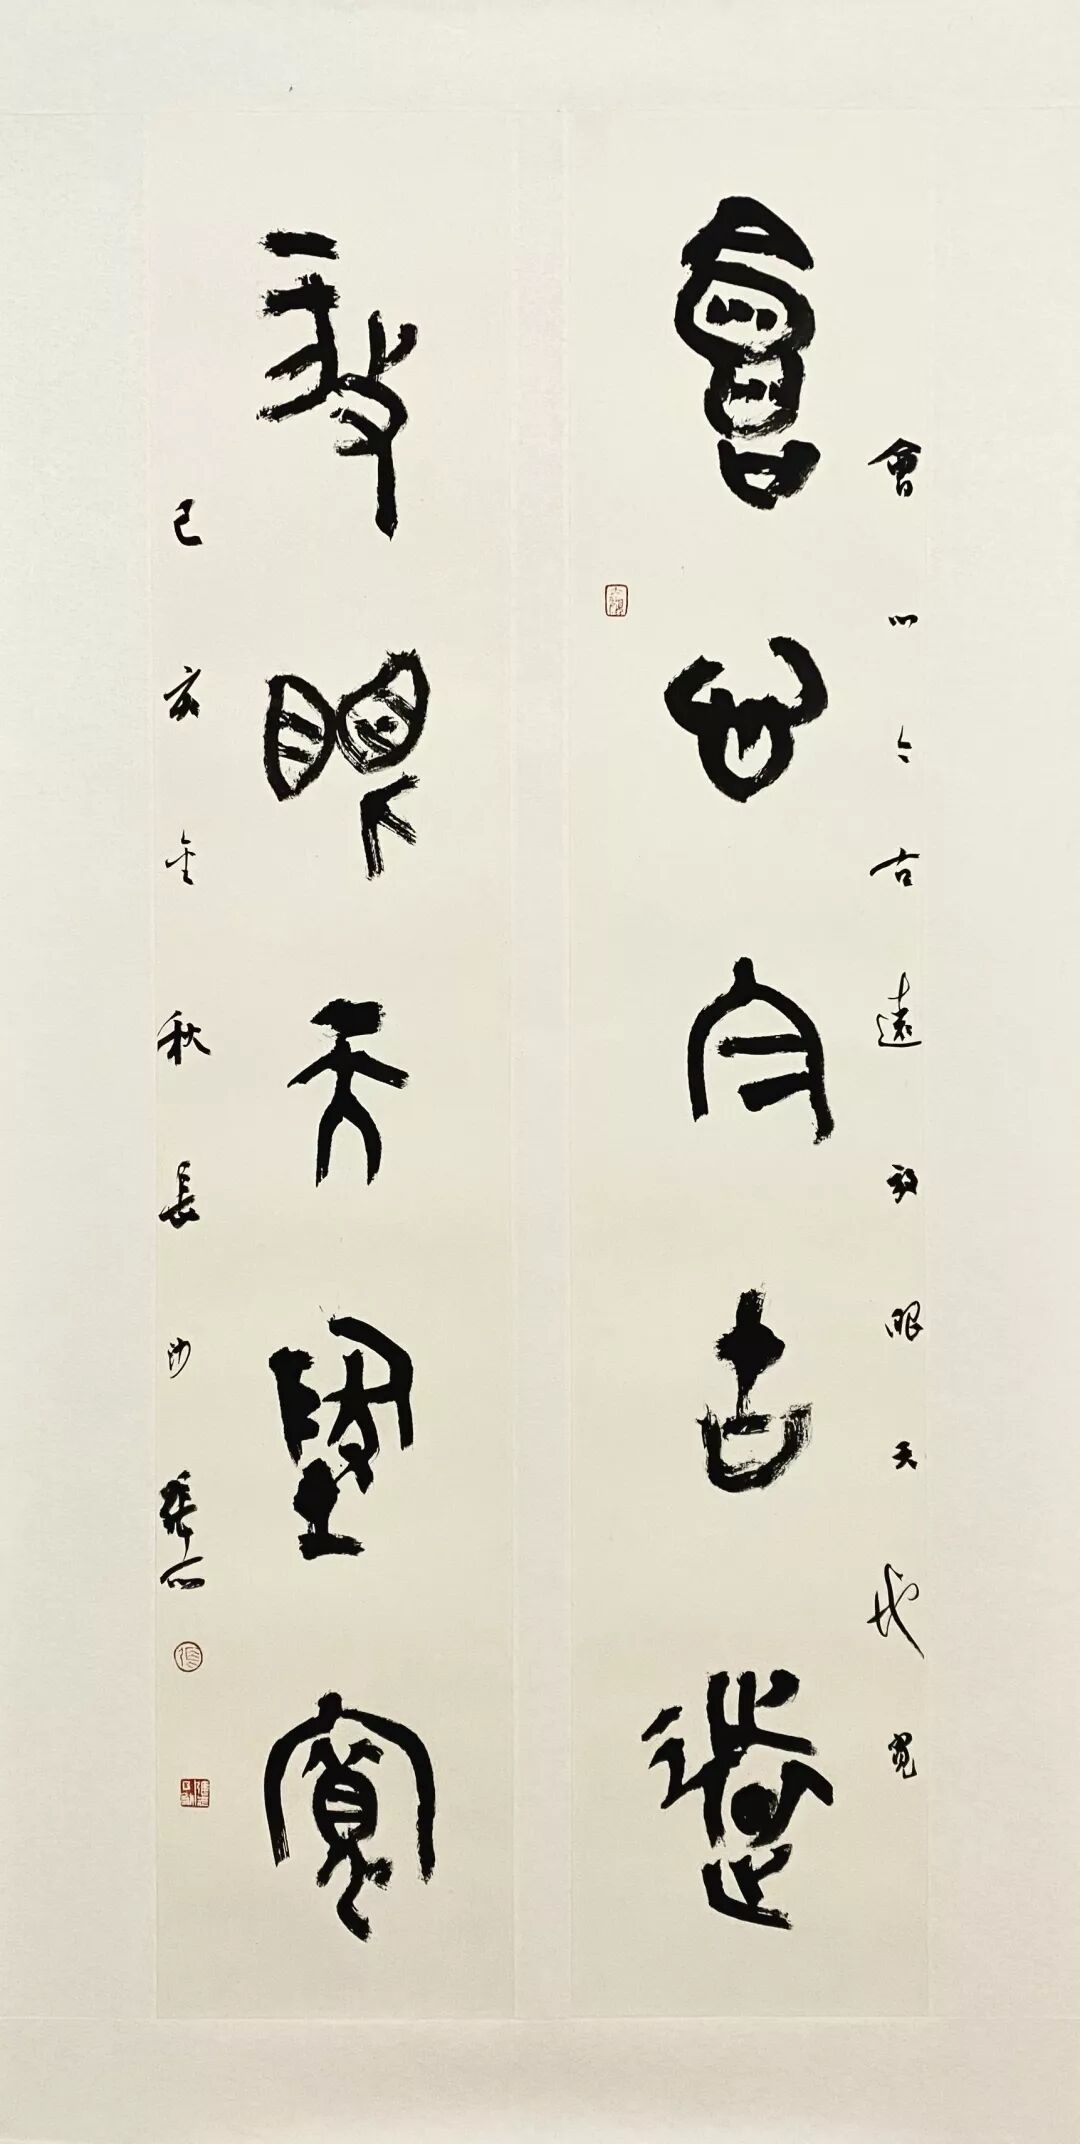 會心今古遠放眼天地寬
會心今古遠
放眼天地寬
己亥金秋長沙